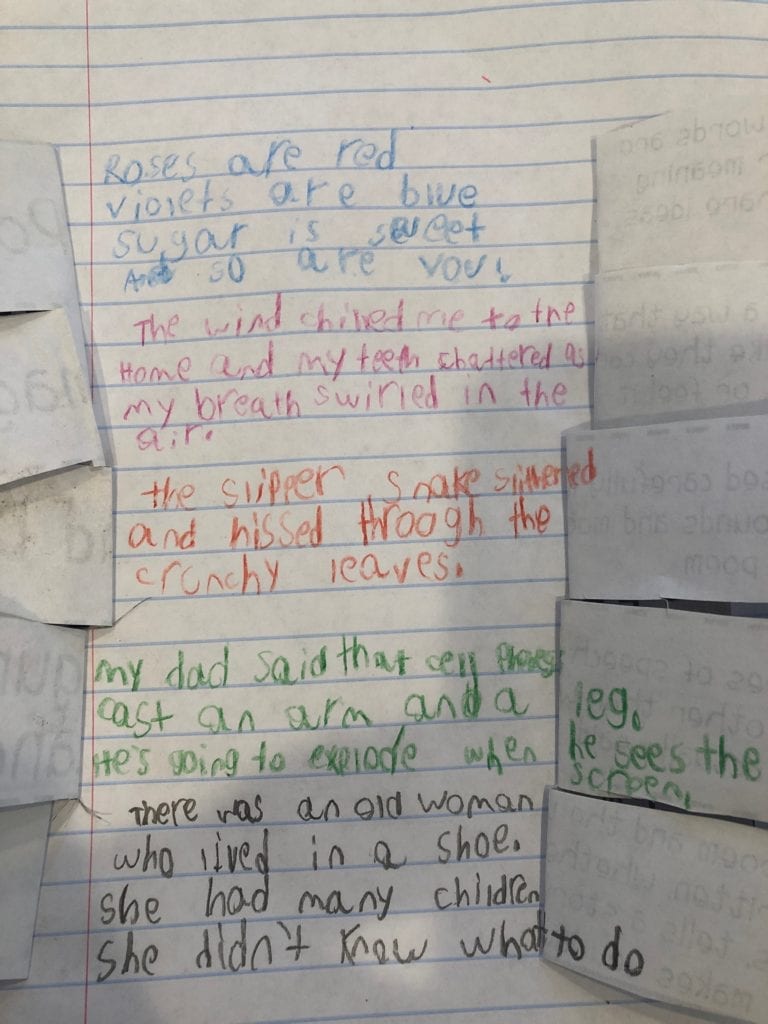 Roses are red
violets are blue
sugar is sweet
And so are you!
The wind chilled me to the
Home and my teeth chattered as
my breath swirled in the
air.
the slipper snake slithered
and hissed throogh the
crunchy leaves.
my dad said that cell phones
cast an arm and a leg.
He's going to explode when he sees the
screen.
There was an old woman
who lived in a shoe.
she had many children
she didn't know what to do